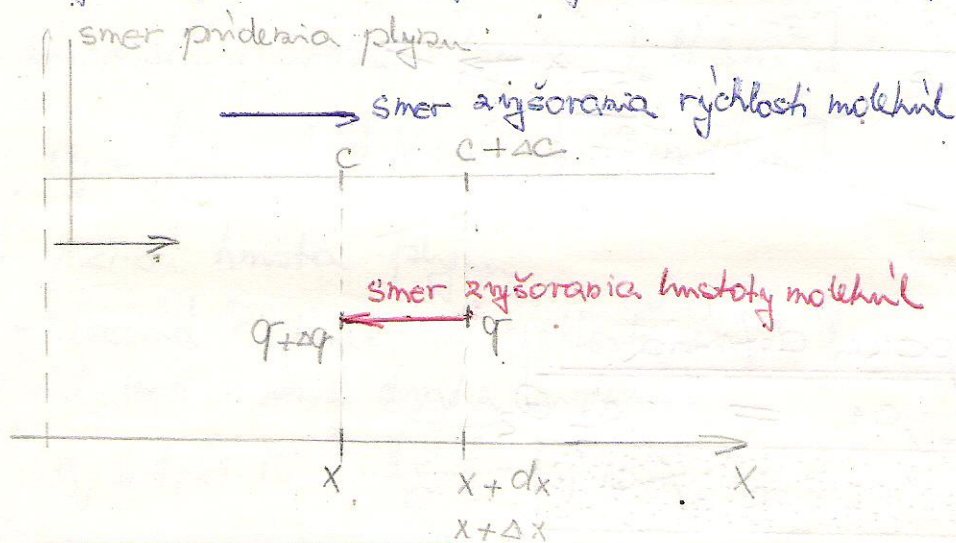 smer prúdenia plynu
smer zvyšovania rýchlosti molekúl
c c+Δc
smer zvyšovania hustoty molekúl
q+Δq q
x x+dx x
x+Δx